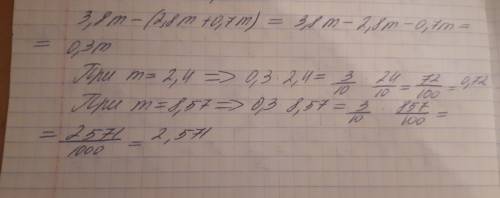 3,8m - (2,8m + 0,7m) = 3,8m - 2,8m - 0,7m =
= 0,3m
При m = 2,4 => 0,3 2,4 = 3/10 24/10 = 72/100 = 0,72
При m = 8,57 => 0,3 8,57 = 3/10 857/100 =
= 2571/1000 = 2,571